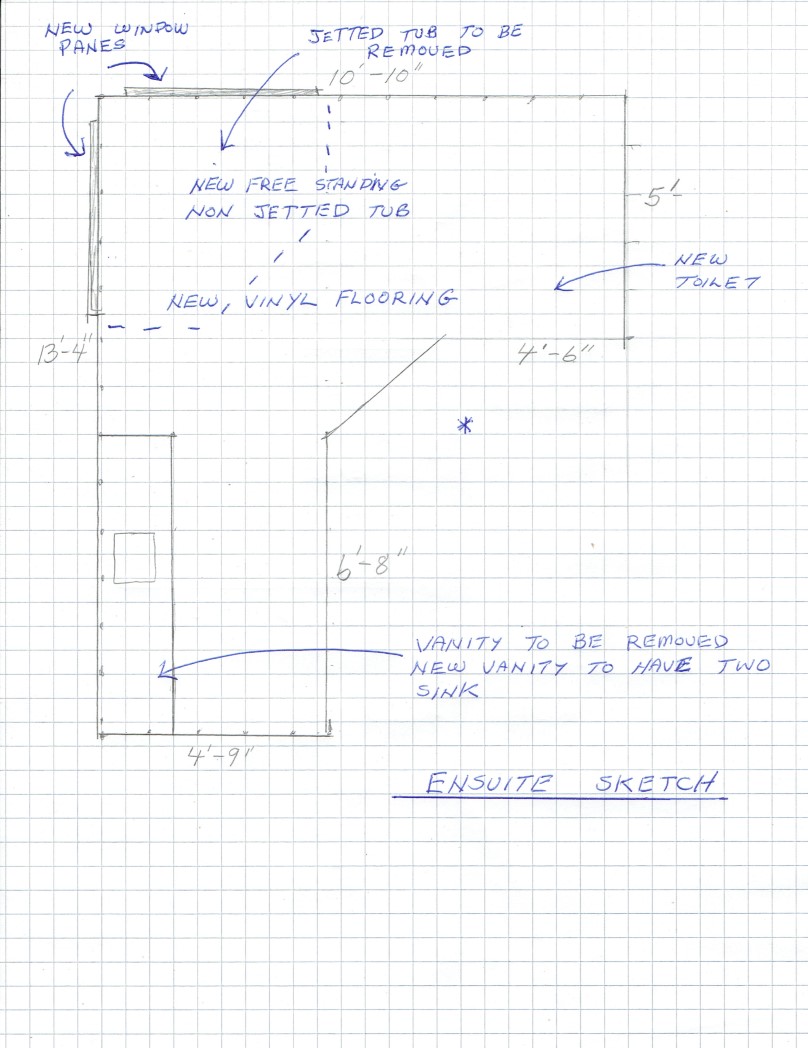 NEW WINDOW
PANES
JETTED TUB TO BE
REMOVED
10'-10"
NEW FREE STANDING
NON JETTED TUB
5'-
NEW
TOILET
NEW, VINYL FLOORING
13'-4"
4'-6"
*
6'-8"
VANITY TO BE REMOVED
NEW VANITY TO HAVE TWO
SINK
4'-9"
ENSUITE SKETCH